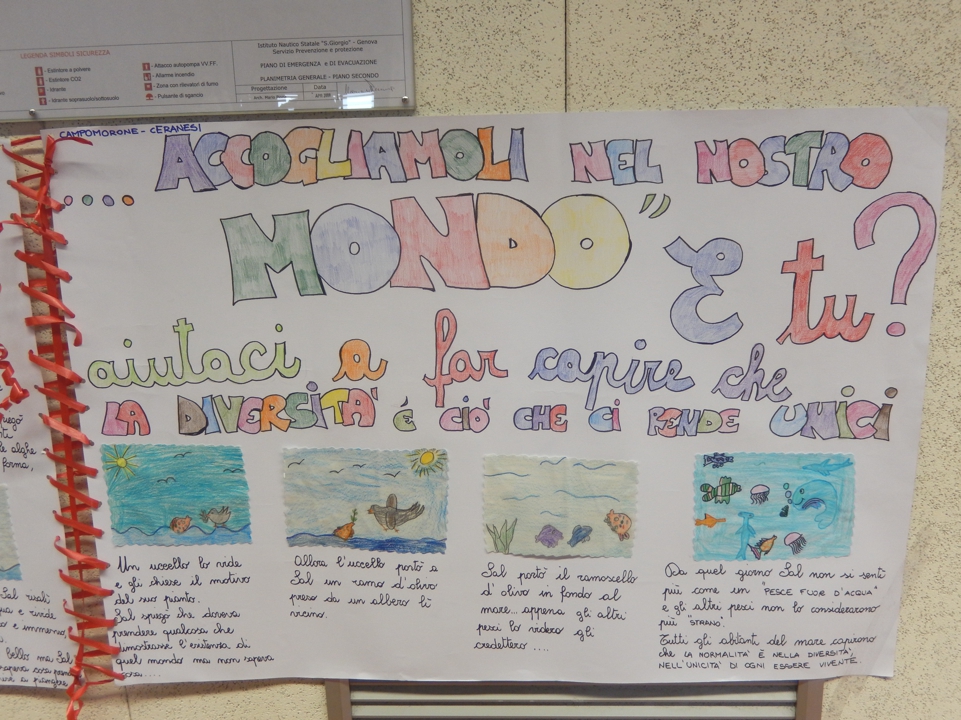 LEGENDA SIMBOLI SICUREZZA
- Estintore a polvere
- Estintore CO2
- Idrante
- Idrante soprasuolo/sottosuolo
- Attacco autopompa VV.FF.
- Allarme incendio
- Zona con rilevatori di fumo
- Pulsante di sgancio
Istituto Nautico Statale "S.Giorgio" - Genova
Servizio Prevenzione e protezione
PIANO DI EMERGENZA e DI EVACUAZIONE
PLANIMETRIA GENERALE - PIANO SECONDO
Progettazione
Data
CAMPOMORONE - CERANESI
.... ACCOGLIAMOLI NEL NOSTRO
MONDO" E tu?
aiutaci a far capire che
LA DIVERSITA' é CIO' CHE CI RENDE UNICI
Un uccello lo vide
e gli chiese il motivo
del suo pianto.
Sal spiegò che doveva
prendere qualcosa che
dimostrasse l'esistenza di
quel mondo ma non sapeva
cosa....
Allora l'uccello portò a
Sal un ramo d'olivo
preso da un albero lì
vicino.
Sal portò il ramoscello
d'olivo in fondo al
mare... appena gli altri
pesci lo videro gli
credettero ....
Da quel giorno Sal non si sentì
più come un "PESCE FUOR D'ACQUA"
e gli altri pesci non lo considerarono
più "STRANO".
Tutti gli abitanti del mare capirono
che LA NORMALITA' E' NELLA DIVERSITA',
NELL'UNICITA' DI OGNI ESSERE VIVENTE.
le alghe
forma,
e immenso,
bello ma Sal